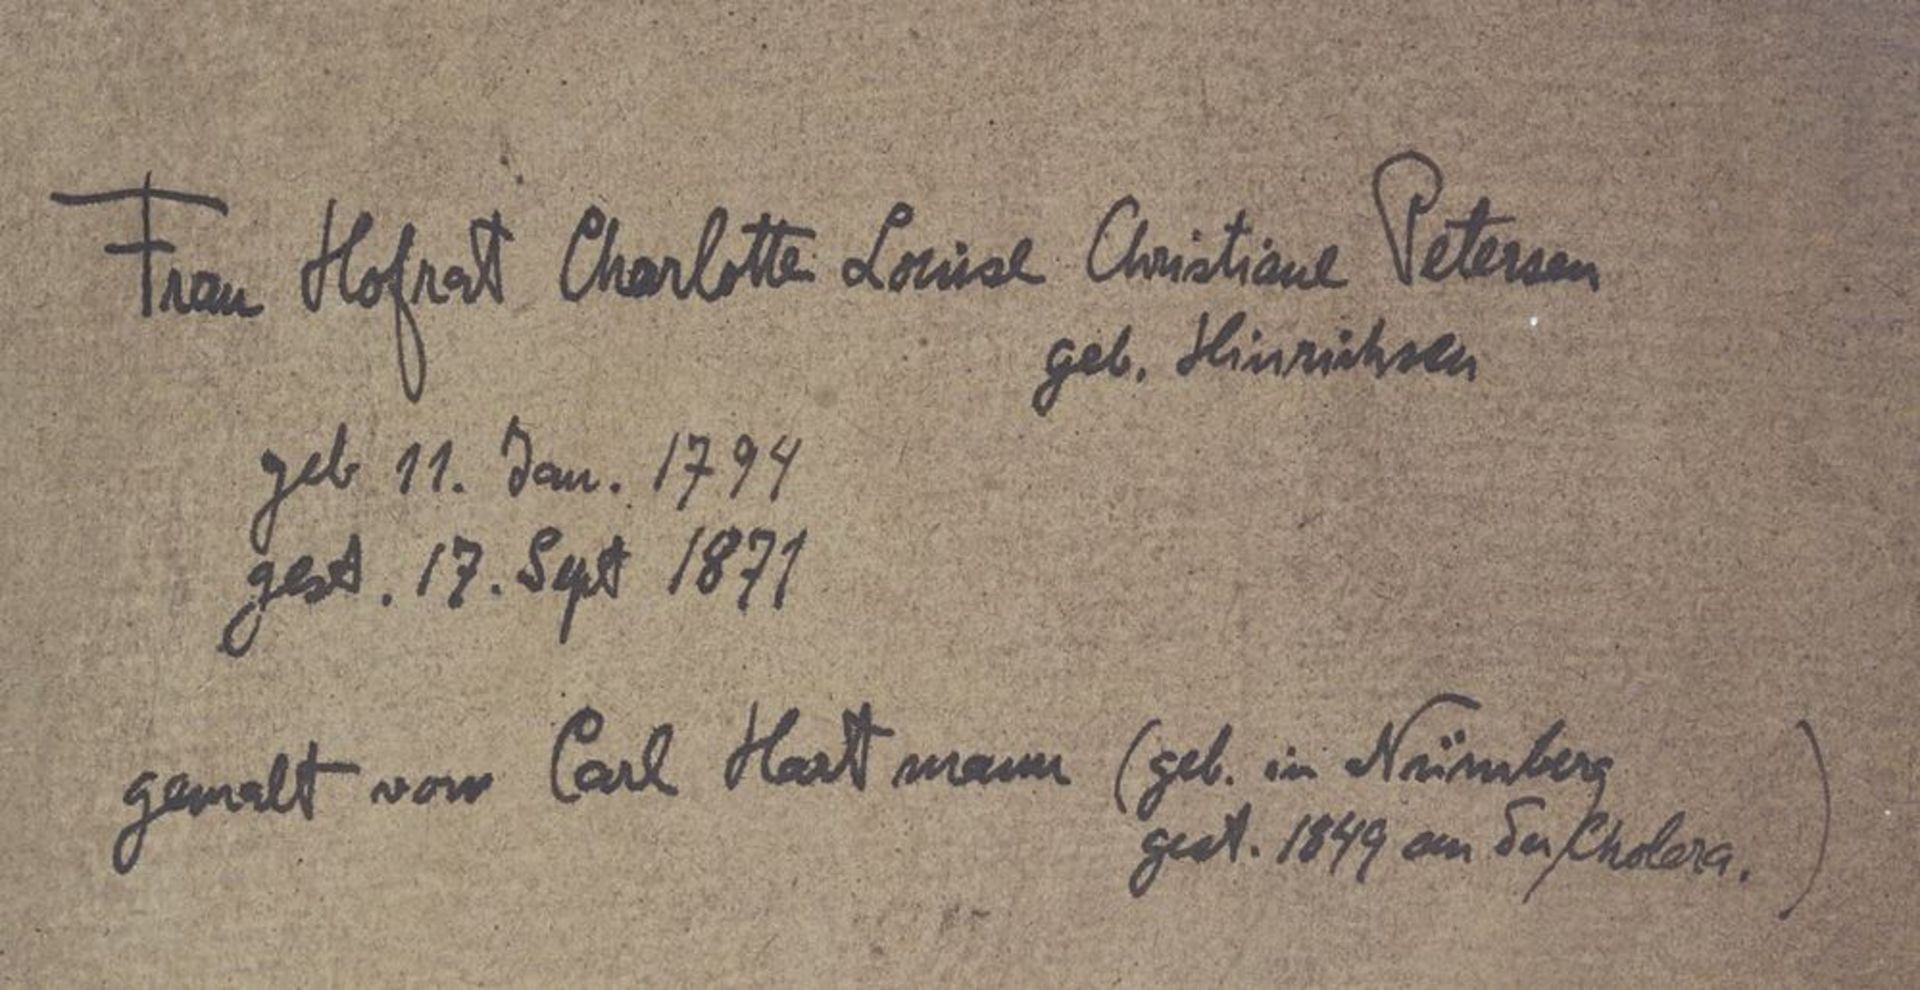 Frau Hofrat Charlotte Louise Christiane Petersen
geb. Hinrichsen
geb 11. Jan. 1794
gest. 17. Sept 1871
gemalt von Carl Hartmann (geb. in Nürnberg
gest. 1849 an der Cholera.)